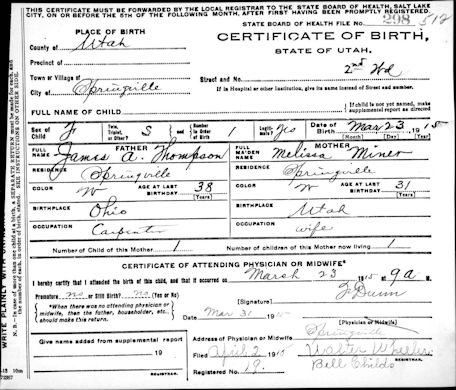 THIS CERTIFICATE MUST BE FORWARDED BY THE LOCAL REGISTRAR TO THE STATE BOARD OF HEALTH, SALT LAKE
CITY, ON OR BEFORE THE 5TH OF THE FOLLOWING MONTH, AFTER FIRST HAVING BEEN PROMPTLY REGISTERED.
STATE BOARD OF HEALTH FILE No. 298 512
PLACE OF BIRTH
County of Utah
CERTIFICATE OF BIRTH,
STATE OF UTAH.
Precinct of
Town or Village of
Street and No. 2nd Wd
City of Springville
If in Hospital or other Institution, give its name instead of Street and number.
FULL NAME OF CHILD
If child is not yet named, make supplemental report as directed
Sex of Child F Twin, Triplet, or Other? S and Number in Order of Birth 1 Legitimate? Yes Date of Birth Mar 23, 1915
(Month) (Day) (Year)
FATHER MOTHER
FULL NAME James A. Thompson FULL MAIDEN NAME Melissa Miner
RESIDENCE Springville RESIDENCE Springville
COLOR W AGE AT LAST BIRTHDAY 38 (Years) COLOR W AGE AT LAST BIRTHDAY 31 (Years)
BIRTHPLACE Ohio BIRTHPLACE Utah
OCCUPATION Carpenter OCCUPATION wife
Number of Child of this Mother 1 Number of children of this Mother now living 1
CERTIFICATE OF ATTENDING PHYSICIAN OR MIDWIFE*
I hereby certify that I attended the birth of this child, and that it occurred on March 23 1915 9 a M.
Premature no or Still Birth? no (Yes or No)
*When there was no attending physician or midwife, then the father, householder, etc., should make this return.
(Signature) J Dunn
Date Mar 31 1915
(Physician or Midwife)
Given name added from supplemental report
19
Address of Physician or Midwife Springville
Filed April 2 1915 Walter Wheeler
Registered No. 19. Bell Childs
REGISTRAR.
REGISTRAR.
WRITE PLAINLY WITH
N. B.—In case of more than one child at a birth, a SEPARATE RETURN must be made for each, and the number of each, in order of birth, stated. SEE INSTRUCTIONS ON OTHER SIDE.